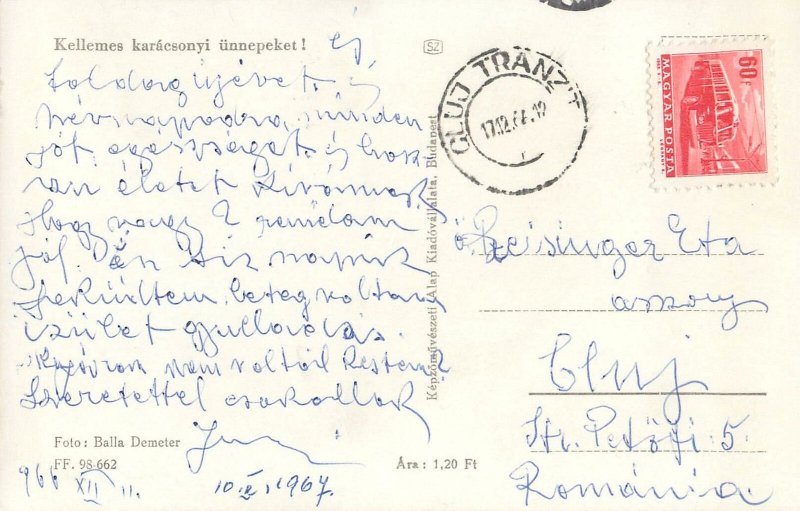 Kellemes karácsonyi ünnepeket! és
boldog újévet, és
névnapodra, minden
jót, egészséget, és hosz
szú életet kívánunk
Hogy vagy
jól. Én tíz napig
feküdtem, beteg voltam
izület gyulladás.
nem voltál
Szeretettel csókollak
Foto: Balla Demeter
FF. 98-662
Ára: 1,20 Ft
966 XII 11.
10.I.1967.
SZ
Képzőművészeti Alap Kiadóvállalata, Budapest
CLUJ TRANZIT
17.12.66.12
60f
MAGYAR POSTA
Reisinger Eta
asszony
Cluj
Str. Petőfi. 5.
Románia.